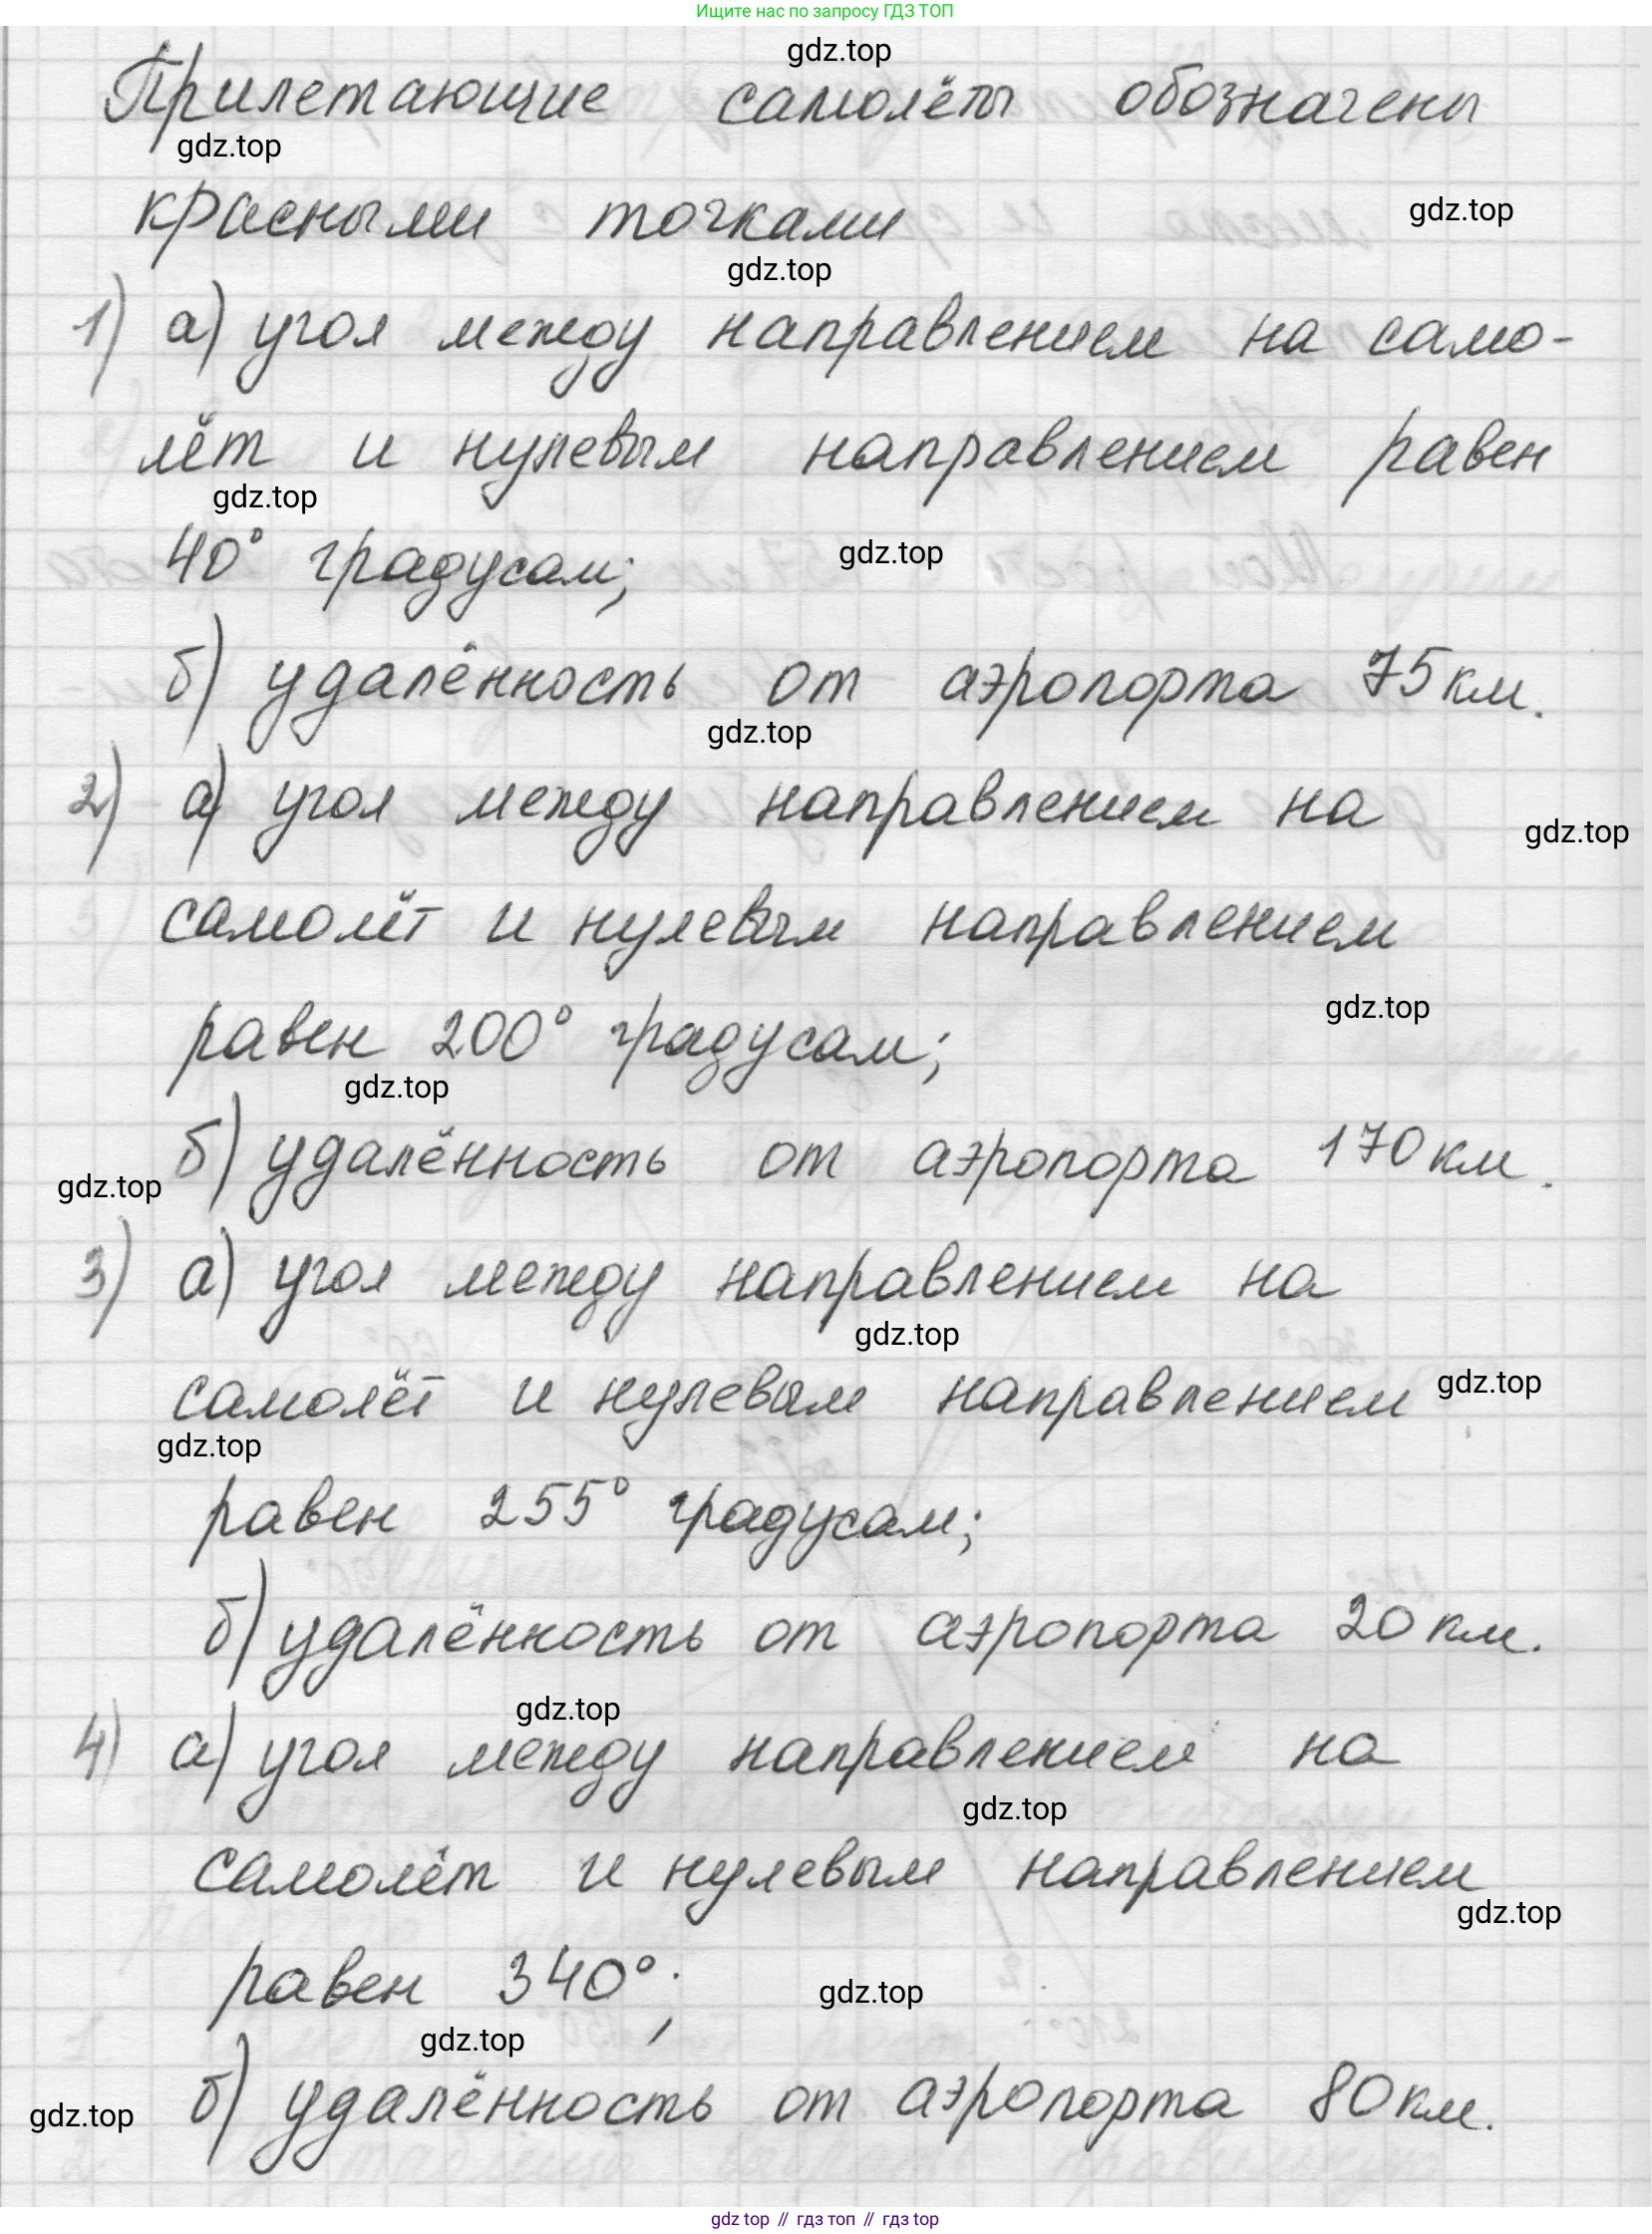 Ищите нас по запросу ГДЗ ТОП
gdz.top
Прилетающие самолёты обозначены
gdz.top
красными точками
gdz.top
gdz.top
1) а) угол между направлением на само-
лёт и нулевым направлением равен
gdz.top
40° градусам;
gdz.top
б) удалённость от аэропорта 75 км.
gdz.top
2) а) угол между направлением на
gdz.top
самолёт и нулевым направлением
gdz.top
равен 200° градусам;
gdz.top
б) удалённость от аэропорта 170 км.
gdz.top
3) а) угол между направлением на
gdz.top
самолёт и нулевым направлением
gdz.top
gdz.top
равен 255° градусам;
б) удалённость от аэропорта 20 км.
gdz.top
4) а) угол между направлением на
gdz.top
самолёт и нулевым направлением
gdz.top
равен 340°;
gdz.top
gdz.top
б) удалённость от аэропорта 80 км.
gdz.top
gdz top // гдз топ // гдз top